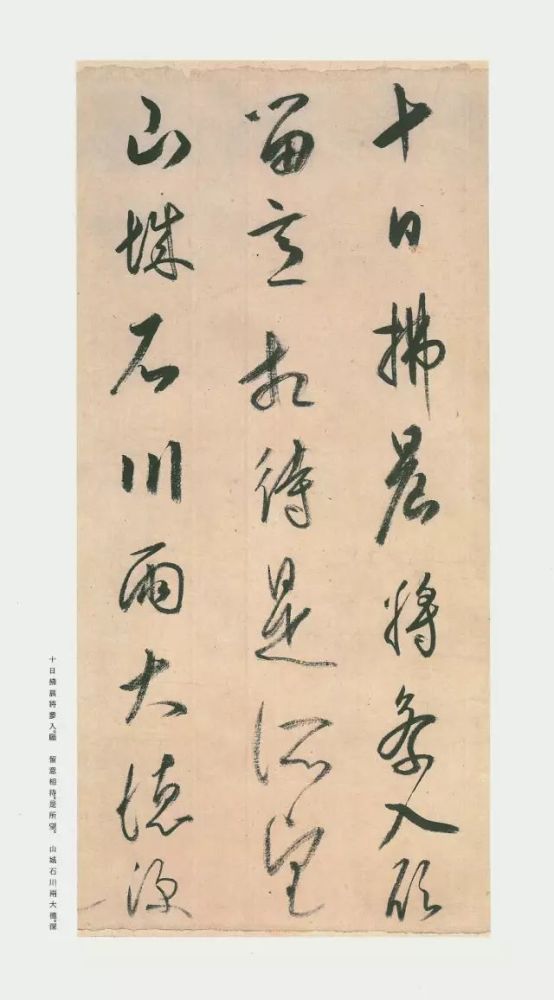 十日拂晨将参入願
留意相待是所望
山城石川兩大徳深
十日拂晨将參入。願　留意相待。是所望。　山城石川兩大德。深